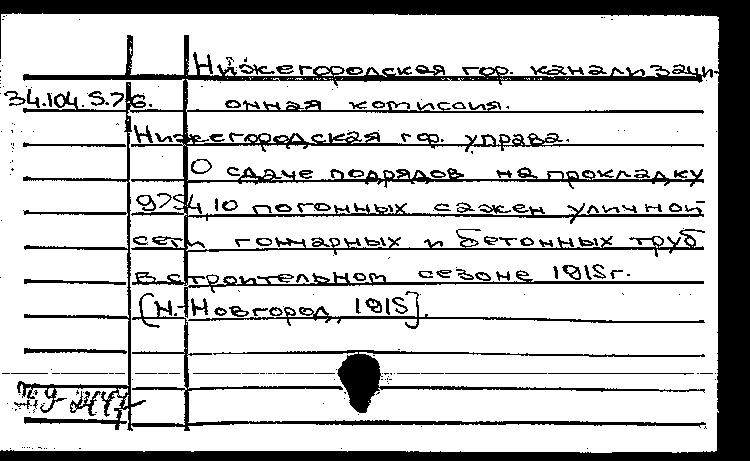 Нижегородская гор. канализаци-
34.104.5.76. онная комиссия.
Нижегородская гор. управа.
О сдаче подрядов на прокладку
9754,10 погонных сажен уличной
сети гончарных и бетонных труб
в строительном сезоне 1915г.
[Н.-Новгород, 1915].